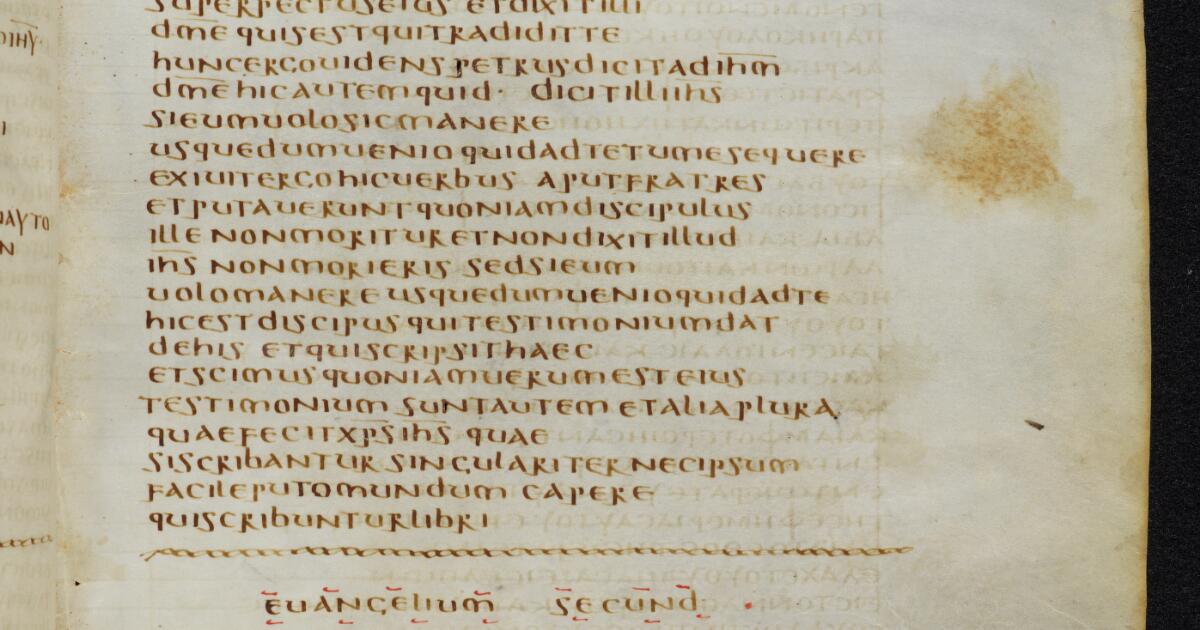 SUPERPECTUSEIUS ETDIXITILLI
dm̅e QUISESTQUITRADIDITTE
HUNCERGOUIDENSPETRUSDICITADIHM̅
dm̅e HICAUTEMQUID· DICITILLIIH̅S
SIEUMUOLOSICMANERE
USQUEDUMUENIO QUIDADTETUMESEQUERE
EXIUITERGOHICUERBUS APUTFRATRES
ETPUTAUERUNTQUONIAMDISCIPULUS
ILLE NONMORITURETNONDIXITILLUD
IH̅S NONMORIERIS SEDSIEUM
UOLOMANERE USQUEDUMUENIOQUIDADTE
HICESTDISCIPUSQUITESTIMONIUMDAT
DEHIS ETQUISCRIPSITHAEC
ETSCIMUSQUONIAMUERUMESTEIUS
TESTIMONIUM SUNTAUTEM ETALIAPLURA
QUAEFECITXP̅SIH̅S QUAE
SISCRIBANTUR SINGULARITERNECIPSUM
FACILEPUTOMUNDUM CAPERE
QUISCRIBUNTURLIBRI
EUANGELIUM SECUND